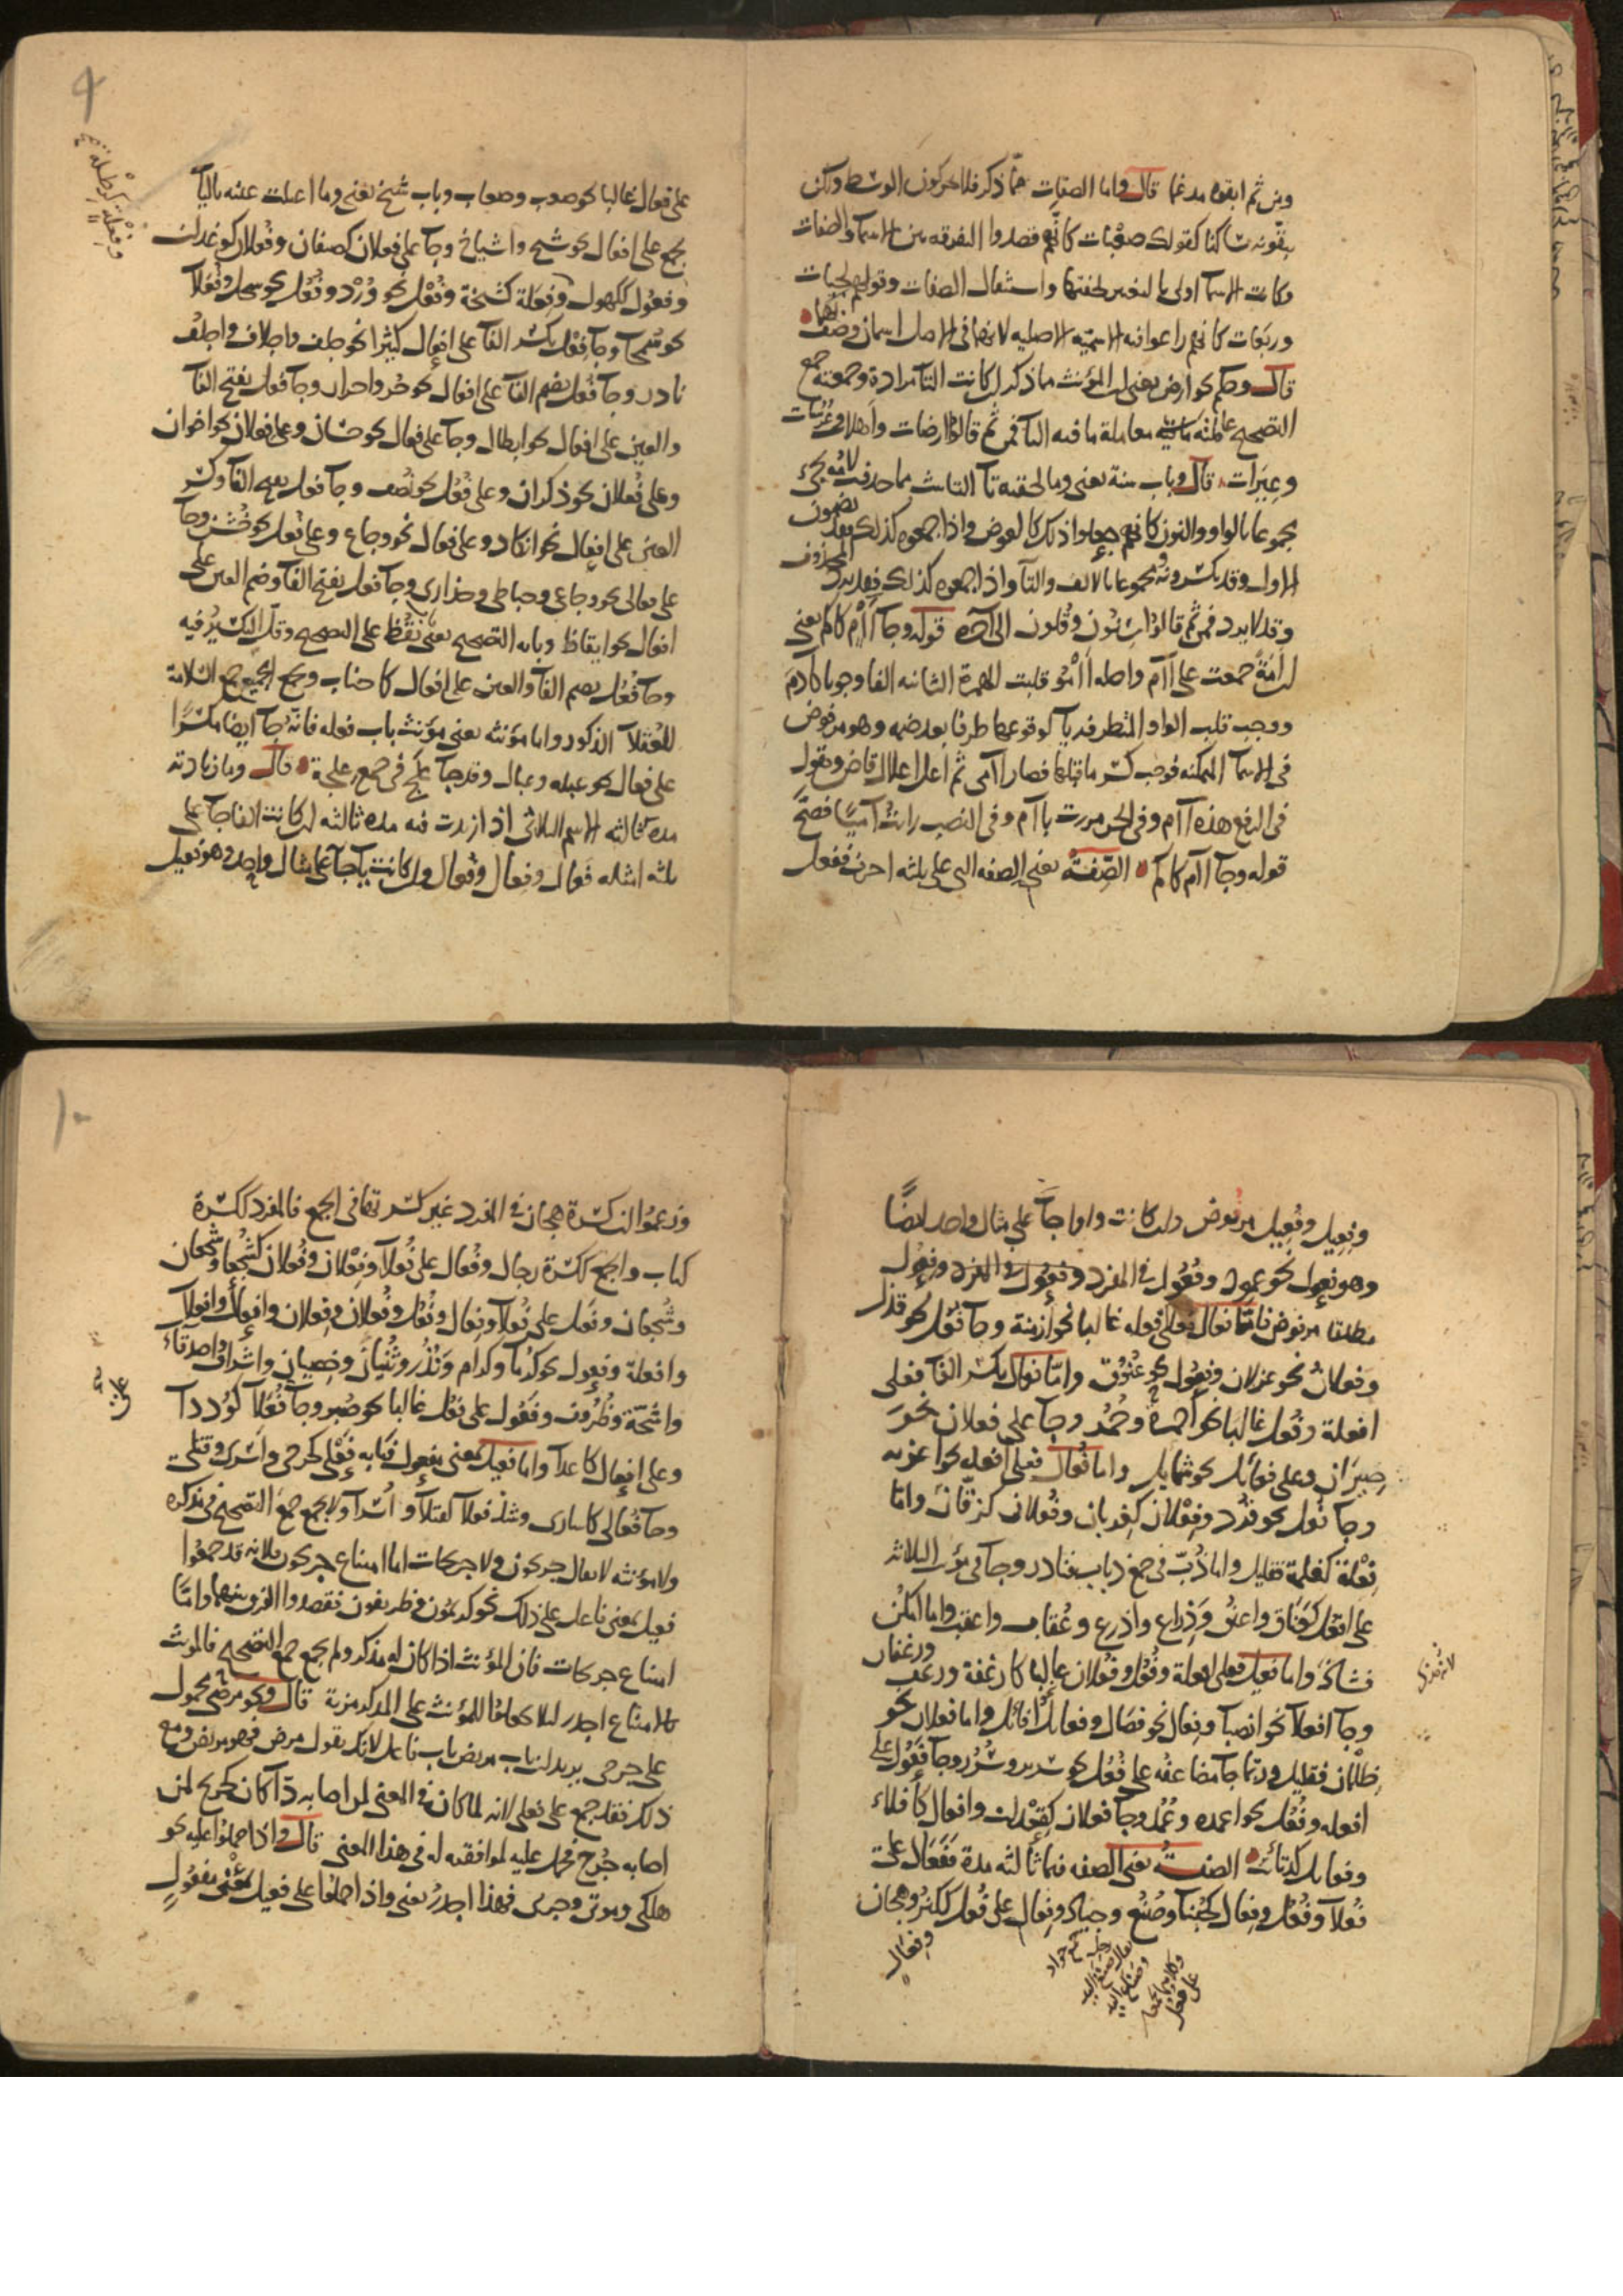 ومن ثم ابقوها مدغما قال واما الصفات مما ذكر فلا يحركون الوسط ولكن
يبقونه ساكنا كقولك صعبات كانهم قصدوا التفرقة بين الاسما والصفات
وكانت الاسما اولى بالتغيير لخفتها واستثقال الصفات وقولهم لجبات
وربعات كانهم راعوا فيه الاسمية الاصلية لانهما في الاصل اسمان وصف بهما
قال وحكم نحو ارض يعنى ان المؤنث ماذكر ان كانت التا مرادة وجمعته جمع
التصحيح عاملته معاملة ما فيه التا فمن ثم قالوا ارضات واهلات وعرسات
وعيرات قال وباب سنة يعنى وما لحقته تا التانيث مما حذفت لامه يجئ
مجموعا بالواو والنون كانهم جعلوا ذلك كالعوض واذا جمعوه كذلك فقد يضمون
الاول وقد يكسرونه ومجموعا بالالف والتا واذا جمعوه كذلك فقد يرد المحذوف
وقد لا يرد فمن ثم قالوا سنون وقلون الى اخره قوله وجا اآم كاكم يعنى
ان امة جمعت على اآم واصله اامو قلبت الهمزة الثانية الفا وجوبا كادم
ووجب قلب الواو المتطرفة يا لوقوعها طرفا بعد ضمة وهو مرفوض
في الاسما المتمكنة فوجب كسر ما قبلها فصار اآمى ثم اعل اعلال قاض وتقول
في الرفع هذه اآم وفي الجر مررت باآم وفي النصب رايت آميا فصح
قوله وجا اآم كاكم الصفة يعنى الصفه التى على ثلثه احرف ففعل
على فعال غالبا نحو صعب وصعاب وباب شيخ يعنى وما اعلت عينه باليا
يجمع على افعال نحو شيخ واشياخ وجا على فعلان كضيفان وفعلان نحو وغدان
وفعول ككهول وفعلة كشيخة وفعل نحو ورد وفعل نحو سحل وفعلا
نحو سمحا وجا فعل بكسر الفا على افعال كثيرا نحو جلف واجلاف واجلف
نادر وجا فعل بضم الفا على افعال نحو حر واحرار وجا فعل بفتح الفا
والعين على افعال نحو ابطال وجا على فعال نحو حسان وعلى فعلان نحو اخوان
وعلى فعلان نحو ذكران وعلى فعل نحو نصف وجا فعل بفتح الفا وكسر
العين على افعال نحو انكاد وعلى فعال نحو وجاع وعلى فعل نحو خشن وجا
على فعالى نحو وجاعى وحباطى وحذارى وجا فعل بفتح الفا وضم العين على
افعال نحو ايقاظ وبابه التصحيح يعنى يقظ على الصحيح وقل التكسير فيه
وجا فعل بضم الفا والعين على افعال كاجناب ويجمع الجميع جمع السلامة
للعقلا الذكور واما مؤنثه يعنى مؤنث باب فعله فانه جا ايضا مكسرا
على فعال نحو عبله وعبال وقد جا علج في جمع علجة قال وما زيادته
مده ثالثه الاسم الثلاثى اذا زيدت فيه مده ثالثه ان كانت الفا جا على
ثلثه امثله فعال وفعال وفعال وان كانت يا جا على مثال واحد وهو فعيل
وفعلة كرطلة
وفعيل وفعيل مرفوض وان كانت واوا جا على مثال واحد ايضا
وهو فعول نحو عمود وفعول في المفرد وفعول في المفرد وفعول
مطلقا مرفوض فاما فعال فعلى افعله غالبا نحو ازمنة وجا فعل نحو قذل
وفعلان نحو غزلان وفعول نحو عنوق واما فعال بكسر الفا فعلى
افعلة وفعل غالبا نحو احمرة وحمر وجا على فعلان نحو
صيران وعلى فعائل نحو شمايل واما فعال فعلى افعله نحو اغربه
وجا فعل نحو قرد وفعلان كغربان وفعلان كزقان واما
فعلة كغلمة فقليل واما ذب في جمع ذباب فنادر وجا في مؤنث الثلاثه
على افعل كعناق واعنق وذراع واذرع وعقاب واعقب واما امكن
فشاذ واما فعيل فعلى افعلة وفعل وفعلان غالبا كارغفة ورغف ورغفان
وجا افعلا نحو انصبا وفعال نحو فصال وفعايل نحو افائل واما فعلان نحو
ظلمان فقليل وربما جا مضاعفه على فعل نحو سرير وسرر وجا فعول على
افعله وفعل نحو اعمده وعمد وجا فعلان كقعدان وافعال كافلاء
وفعايل كذنائب الصفة يعنى الصفه فيما ثالثه مدة ففعال على
فعلا وفعل وفعال كجبنا وصنع وجياد وفعال على فعل ككنز وهجان
وفعال
وزعموا ان كسرة هجان في المفرد غير كسرتها في الجمع فالمفرد ككسرة
كتاب والجمع ككسرة رجال وفعال على فعلا وفعلان وفعلان كشجعا وشجعان
وشجعان وفعيل على فعلا وفعال وفعل وفعلان وفعلان وافعال وافعلا
وافعلة وفعول نحو كرما وكرام ونذر وثنيان وخصيان واشراف واصدقاء
واشحة وظروف وفعول على فعل غالبا نحو صبر وجا فعلا كوددا
وعلى افعال كاعدا واما فعيل بمعنى مفعول فبابه فعلى كجرحى واسرى وقتلى
وجا فعالى كاسارى وشذ فعلا كقتلا واسرا ولا يجمع جمع التصحيح في مذكره
ولا مؤنثه لا يقال جريحون ولا جريحات اما امتناع جريحون فلانه قد جمعوا
فعيل بمعنى فاعل على ذلك نحو كريمون وظريفون فقصدوا الفرق بينهما واما
امتناع جريحات فان المؤنث اذا كان له مذكر ولم يجمع جمع التصحيح فالمؤنث
بالامتناع اجدر لئلا يجعلوا للمؤنث على المذكر مزية قال ونحو مرضى محمول
على جرحى يريد ان باب مريض باب فاعل لانك تقول مرض فهو مريض ومع
ذلك فقد جمع على فعلى لانه لما كان في المعنى لمن اصابه دا كان كجريح لمن
اصابه جرح فحمل عليه لموافقته له في هذا المعنى قال واذا حملوا عليه نحو
هلكى وموتى وجربى فهذا اجدر يعنى واذا حملوا على فعيل بمعنى مفعول